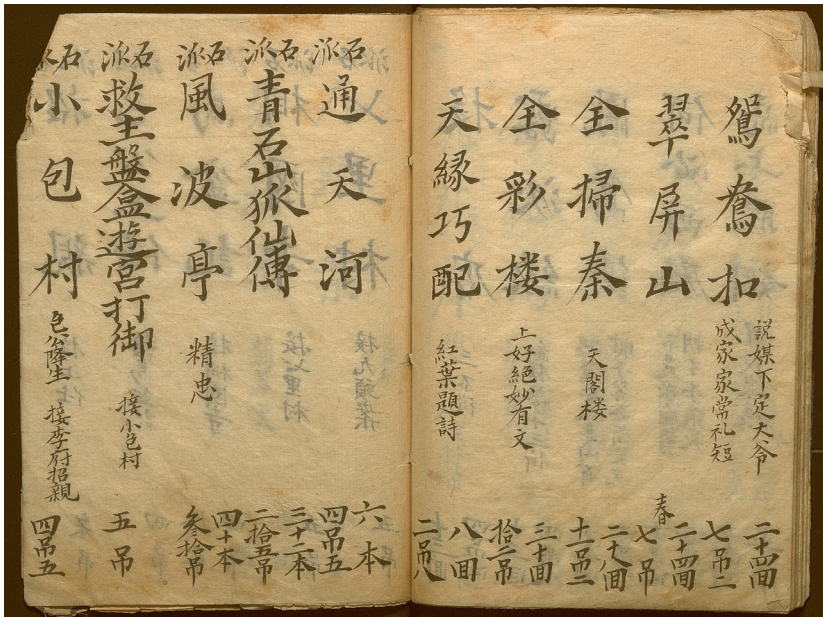 鴛鴦扣
說媒下定大爷
成家家常礼短
二十四面
七吊二
翠屏山
春
二十四面
七吊
全掃秦
天閣楼
二十八面
十一吊二
全彩楼
上好絕妙有文
三十面
拾二吊
天緣巧配
紅葉題詩
八面
二吊八
石派
通天河
六本
四吊五
石派
青石山狐仙傳
三十二本
二拾五吊
石派
風波亭
精忠
四十本
叁拾吊
石派
救主盤盒遊宮打御
接小包村
五吊
石派
小包村
包公降生
接李府招親
四吊五